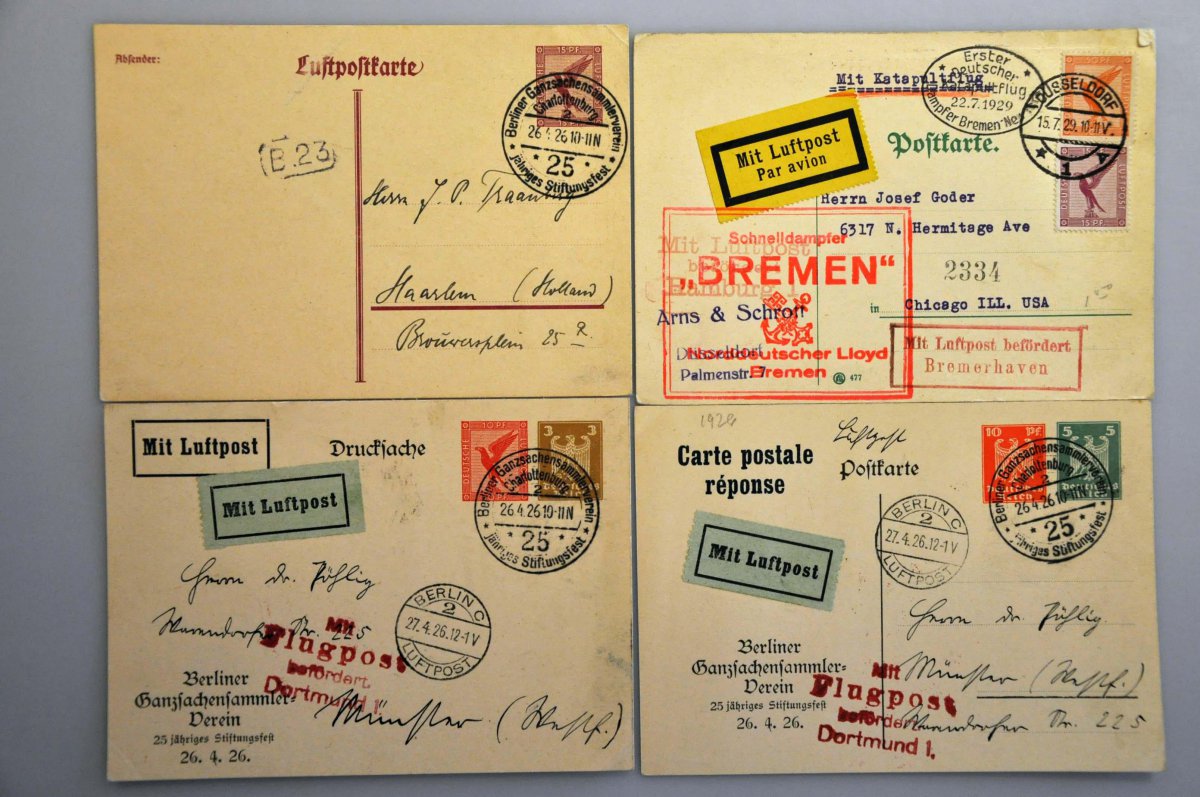 Absender:
Luftpostkarte
15 PF.
Berliner Ganzsachensammlerverein
Charlottenburg
2
26.4.26 10-11 N
* 25 *
jähriges Stiftungsfest
B.23
Herrn J. P. Traanberg
Haarlem (Holland)
Brouwersplein 25 R.
Mit Katapultflug
Erster
Deutscher
Katapultflug
22.7.1929
Dampfer Bremen - New
DÜSSELDORF
15.7.29.10-11V.
* 1 A
15 PF.
DEUTSCHE
LUFTPOST
Mit Luftpost
Par avion
Postkarte.
Herrn Josef Goder
6317 N. Hermitage Ave
2334
in Chicago ILL. USA
Schnelldampfer
„BREMEN“
Norddeutscher Lloyd
Bremen
Mit Luftpost
Hamburg 1
Arns & Schroff
Düsseldorf
Palmenstr. 7
477
Mit Luftpost befördert
Bremerhaven
Mit Luftpost
Drucksache
Mit Luftpost
10 PF.
DEUTSCHE
3 3
Berliner Ganzsachensammlerverein
Charlottenburg
2
26.4.26 10-11 N
* 25 *
jähriges Stiftungsfest
Herrn Dr. Pöhlig
Warendorfer Str. 225
BERLIN C
2
27.4.26.12-1V
LUFTPOST
Mit
Flugpost
befördert
Dortmund 1.
Münster (Westf.)
Berliner
Ganzsachensammler-
Verein
25 jähriges Stiftungsfest
26. 4. 26.
1926
Carte postale
réponse
Luftpost
Postkarte
10 Pf
5 5
Berliner Ganzsachensammlerverein
Charlottenburg
2
26.4.26 10-11 N
* 25 *
jähriges Stiftungsfest
Mit Luftpost
BERLIN C
2
27.4.26.12-1V
LUFTPOST
Herrn Dr. Pöhlig
Münster (Westf.)
Warendorfer Str. 225
Mit
Flugpost
befördert
Dortmund 1.
Berliner
Ganzsachensammler-
Verein
25 jähriges Stiftungsfest
26. 4. 26.